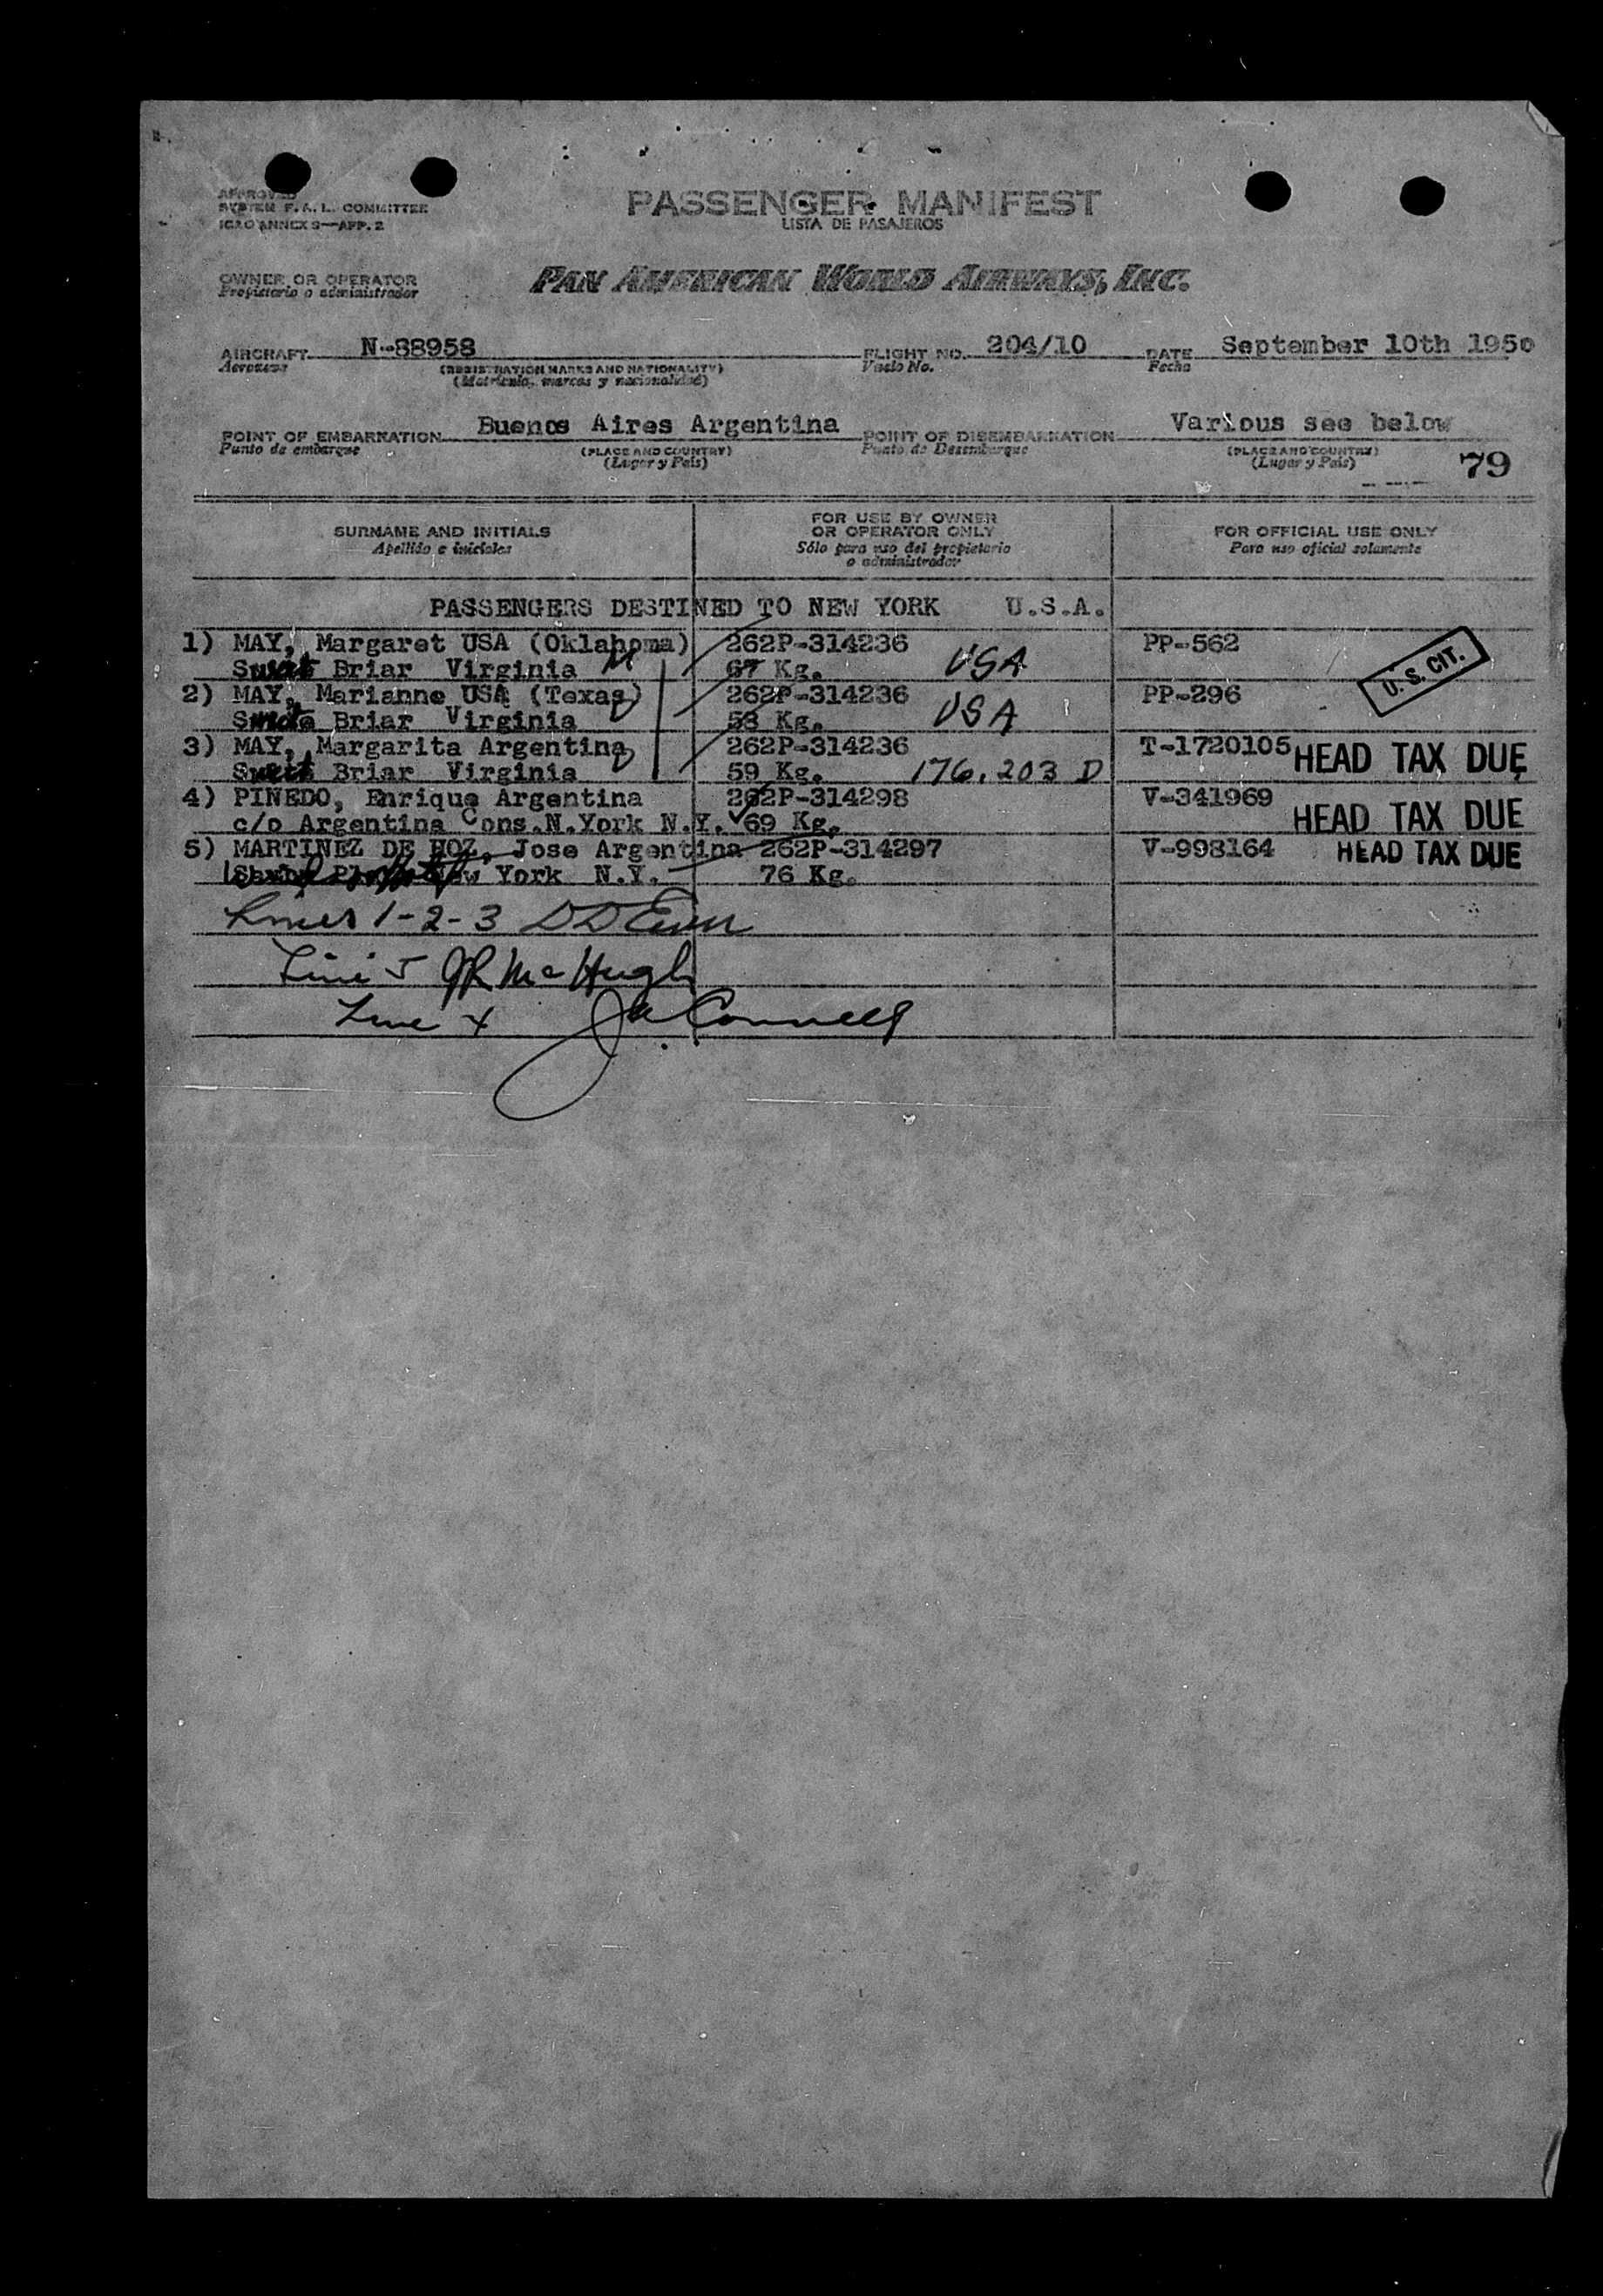 APPROVED
SYSTEM F.A.L. COMMITTEE
ICAO ANNEX 9—APP. 2
PASSENGER MANIFEST
LISTA DE PASAJEROS
OWNER OR OPERATOR
Propietario o administrador
PAN AMERICAN WORLD AIRWAYS, INC.
AIRCRAFT N-88958 FLIGHT NO. 204/10 DATE September 10th 1950
Aeronave (REGISTRATION MARKS AND NATIONALITY) Vuelo No. Fecha
(Matricula, marcas y nacionalidad)
POINT OF EMBARKATION Buenos Aires Argentina POINT OF DISEMBARKATION Various see below
Punto de embarque (PLACE AND COUNTRY) Punto de Desembarque (PLACE AND COUNTRY)
(Lugar y Pais) (Lugar y Pais) 79
SURNAME AND INITIALS
Apellido e iniciales
FOR USE BY OWNER
OR OPERATOR ONLY
Sólo para uso del propietario
o administrador
FOR OFFICIAL USE ONLY
Para uso oficial solamente
PASSENGERS DESTINED TO NEW YORK U.S.A.
1) MAY, Margaret USA (Oklahoma) 262P-314236 PP-562
Briar Virginia 67 Kg. USA U. S. CIT.
2) MAY, Marianne USA (Texas) 262P-314236 PP-296
Briar Virginia 58 Kg. USA
3) MAY, Margarita Argentina 262P-314236 T-1720105 HEAD TAX DUE
Briar Virginia 59 Kg. 176.203 D
4) PINEDO, Enrique Argentina 262P-314298 V-341969 HEAD TAX DUE
c/o Argentina Cons.N.York N.Y. 69 Kg.
5) MARTINEZ DE HOZ, Jose Argentina 262P-314297 V-998164 HEAD TAX DUE
New York N.Y. 76 Kg.
Lines 1-2-3
Line 5 JR McHugh
Line 4 Connell